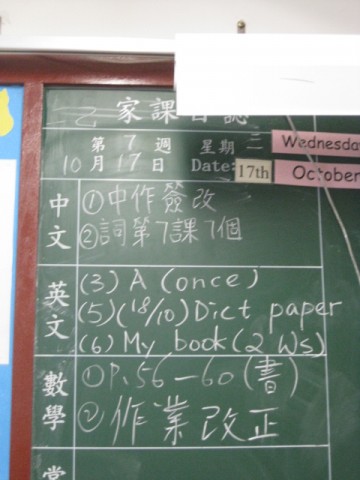 家課日誌
第7週 星期三 Wednesday
10月17日 Date: 17th October
中文
①中作簽改
②詞第7課7個
英文
(3) A (once)
(5) (18/10) Dict paper
(6) My book (2 WS)
數學
①P.56—60 (書)
②作業改正